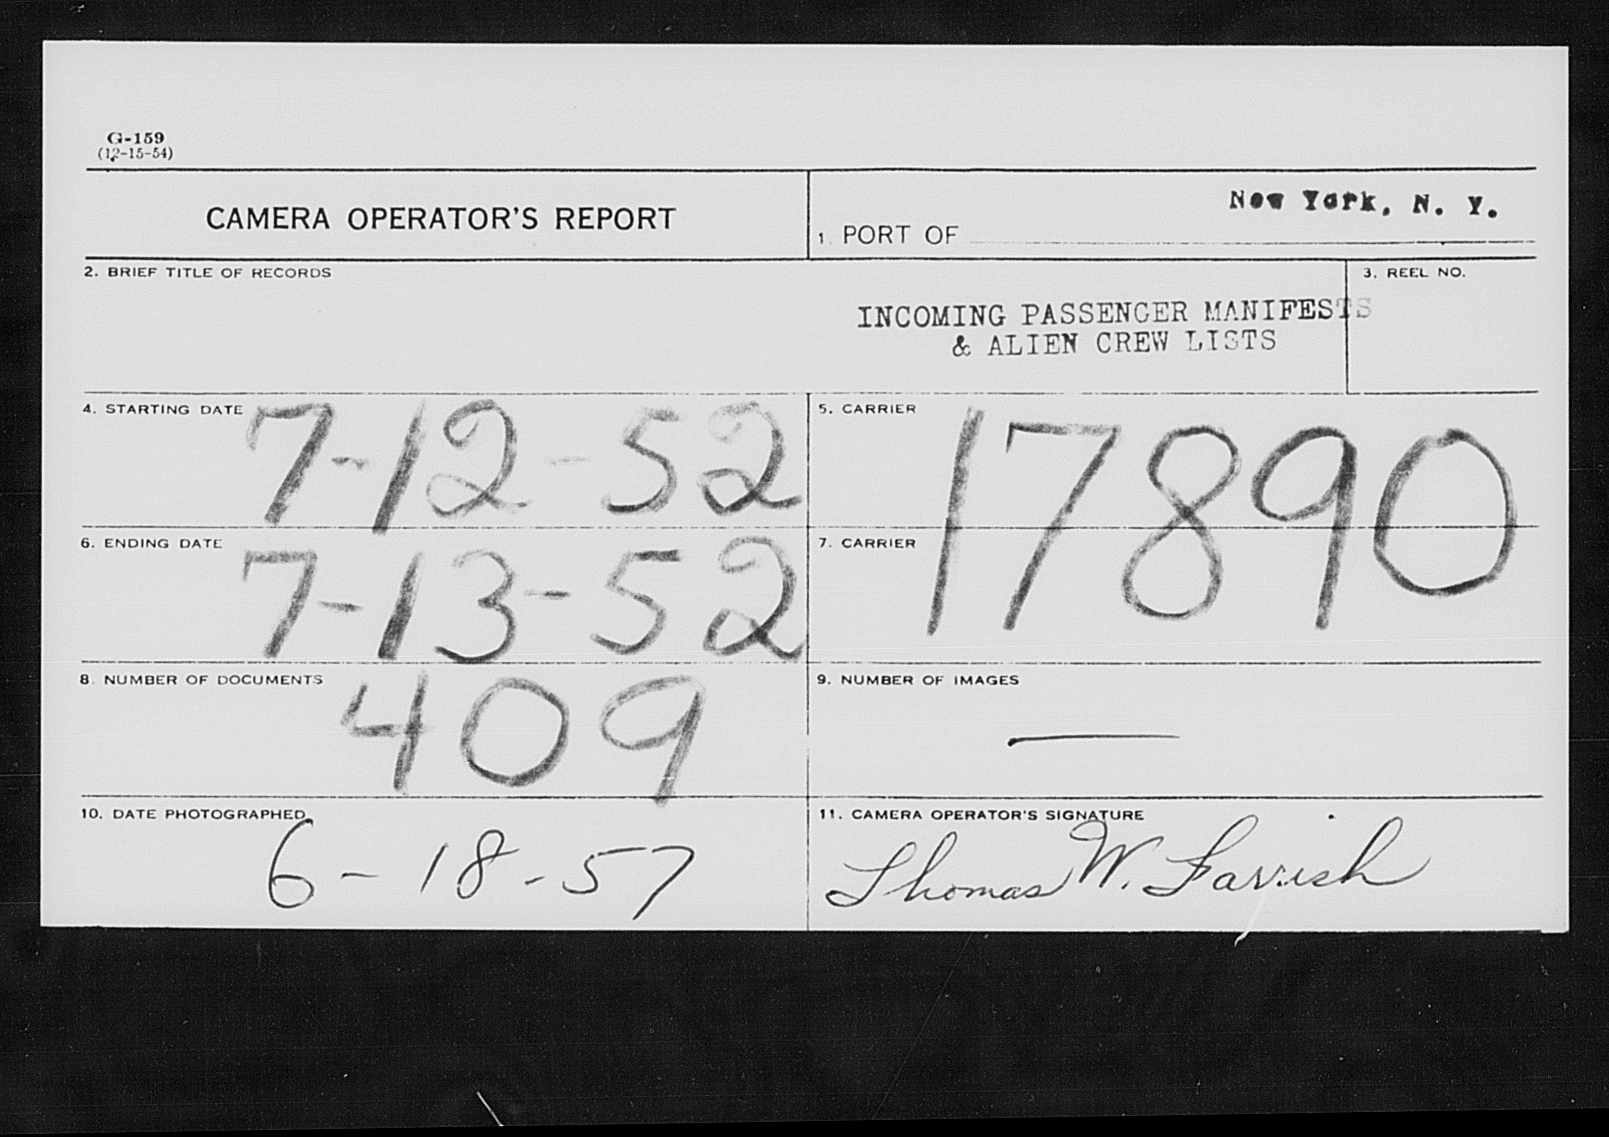 G-159
(12-15-54)
CAMERA OPERATOR'S REPORT
1. PORT OF New York, N. Y.
2. BRIEF TITLE OF RECORDS
INCOMING PASSENGER MANIFESTS
& ALIEN CREW LISTS
3. REEL NO.
4. STARTING DATE 7-12-52
5. CARRIER 17890
6. ENDING DATE 7-13-52
7. CARRIER
8. NUMBER OF DOCUMENTS 409
9. NUMBER OF IMAGES —
10. DATE PHOTOGRAPHED 6-18-57
11. CAMERA OPERATOR'S SIGNATURE
Thomas W. Farrish